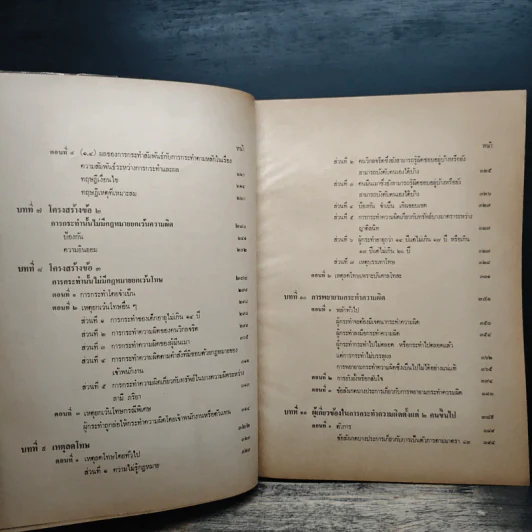 หน้า
ตอนที่ ๔ (๑.๔) ผลของการกระทำสัมพันธ์กับการกระทำตามหลักในเรื่อง
ความสัมพันธ์ระหว่างการกระทำและผล
ทฤษฎีเงื่อนไข
ทฤษฎีเหตุที่เหมาะสม
บทที่ ๗ โครงสร้างข้อ ๒
การกระทำนั้นไม่มีกฎหมายยกเว้นความผิด
ป้องกัน
ความยินยอม
บทที่ ๘ โครงสร้างข้อ ๓
การกระทำนั้นไม่มีกฎหมายยกเว้นโทษ
ตอนที่ ๑ การกระทำโดยจำเป็น
ตอนที่ ๒ เหตุยกเว้นโทษอื่น ๆ
ส่วนที่ ๑ การกระทำของเด็กอายุไม่เกิน ๑๔ ปี
ส่วนที่ ๒ การกระทำความผิดของคนวิกลจริต
ส่วนที่ ๓ การกระทำความผิดของผู้มึนเมา
ส่วนที่ ๔ การกระทำความผิดตามคำสั่งที่มิชอบด้วยกฎหมายของ
เจ้าพนักงาน
ส่วนที่ ๕ การกระทำความผิดเกี่ยวกับทรัพย์ในบางความผิดระหว่าง
สามี ภริยา
ตอนที่ ๓ เหตุยกเว้นโทษกรณีพิเศษ
ผู้กระทำถูกล่อให้กระทำความผิดโดยเจ้าพนักงานหรือตัวแทน
บทที่ ๙ เหตุลดโทษ
ตอนที่ ๑ เหตุลดโทษโดยทั่วไป
ส่วนที่ ๑ ความไม่รู้กฎหมาย
หน้า
ส่วนที่ ๒ คนวิกลจริตซึ่งยังสามารถรู้ผิดชอบอยู่บ้างหรือยัง
สามารถบังคับตนเองได้บ้าง
ส่วนที่ ๓ คนมึนเมาซึ่งยังสามารถรู้ผิดชอบอยู่บ้างหรือยัง
สามารถบังคับตนเองได้บ้าง
ส่วนที่ ๔ ป้องกัน จำเป็น เกินขอบเขต
ส่วนที่ ๕ การกระทำความผิดเกี่ยวกับทรัพย์บางมาตราระหว่าง
ญาติสนิท
ส่วนที่ ๖ ผู้กระทำอายุกว่า ๑๔ ปีแต่ไม่เกิน ๑๗ ปี หรือเกิน
๑๗ ปีแต่ไม่เกิน ๒๐ ปี
ส่วนที่ ๗ เหตุบรรเทาโทษ
ตอนที่ ๒ เหตุลดโทษเพราะบันดาลโทสะ
บทที่ ๑๐ การพยายามกระทำความผิด
ตอนที่ ๑ หลักทั่วไป
ผู้กระทำจะต้องมีเจตนากระทำความผิด
ผู้กระทำลงมือกระทำความผิด
ผู้กระทำกระทำไปไม่ตลอด หรือกระทำไปตลอดแล้ว
แต่การกระทำไม่บรรลุผล
การพยายามกระทำความผิดซึ่งเป็นไปไม่ได้อย่างแน่แท้
ตอนที่ ๒ การยับยั้งหรือกลับใจ
ข้อสังเกตบางประการเกี่ยวกับการพยายามกระทำความผิด
บทที่ ๑๑ ผู้เกี่ยวข้องในการกระทำความผิดตั้งแต่ ๒ คนขึ้นไป
ตอนที่ ๑ ตัวการ
ข้อสังเกตบางประการเกี่ยวกับการเป็นตัวการตามมาตรา ๘๓